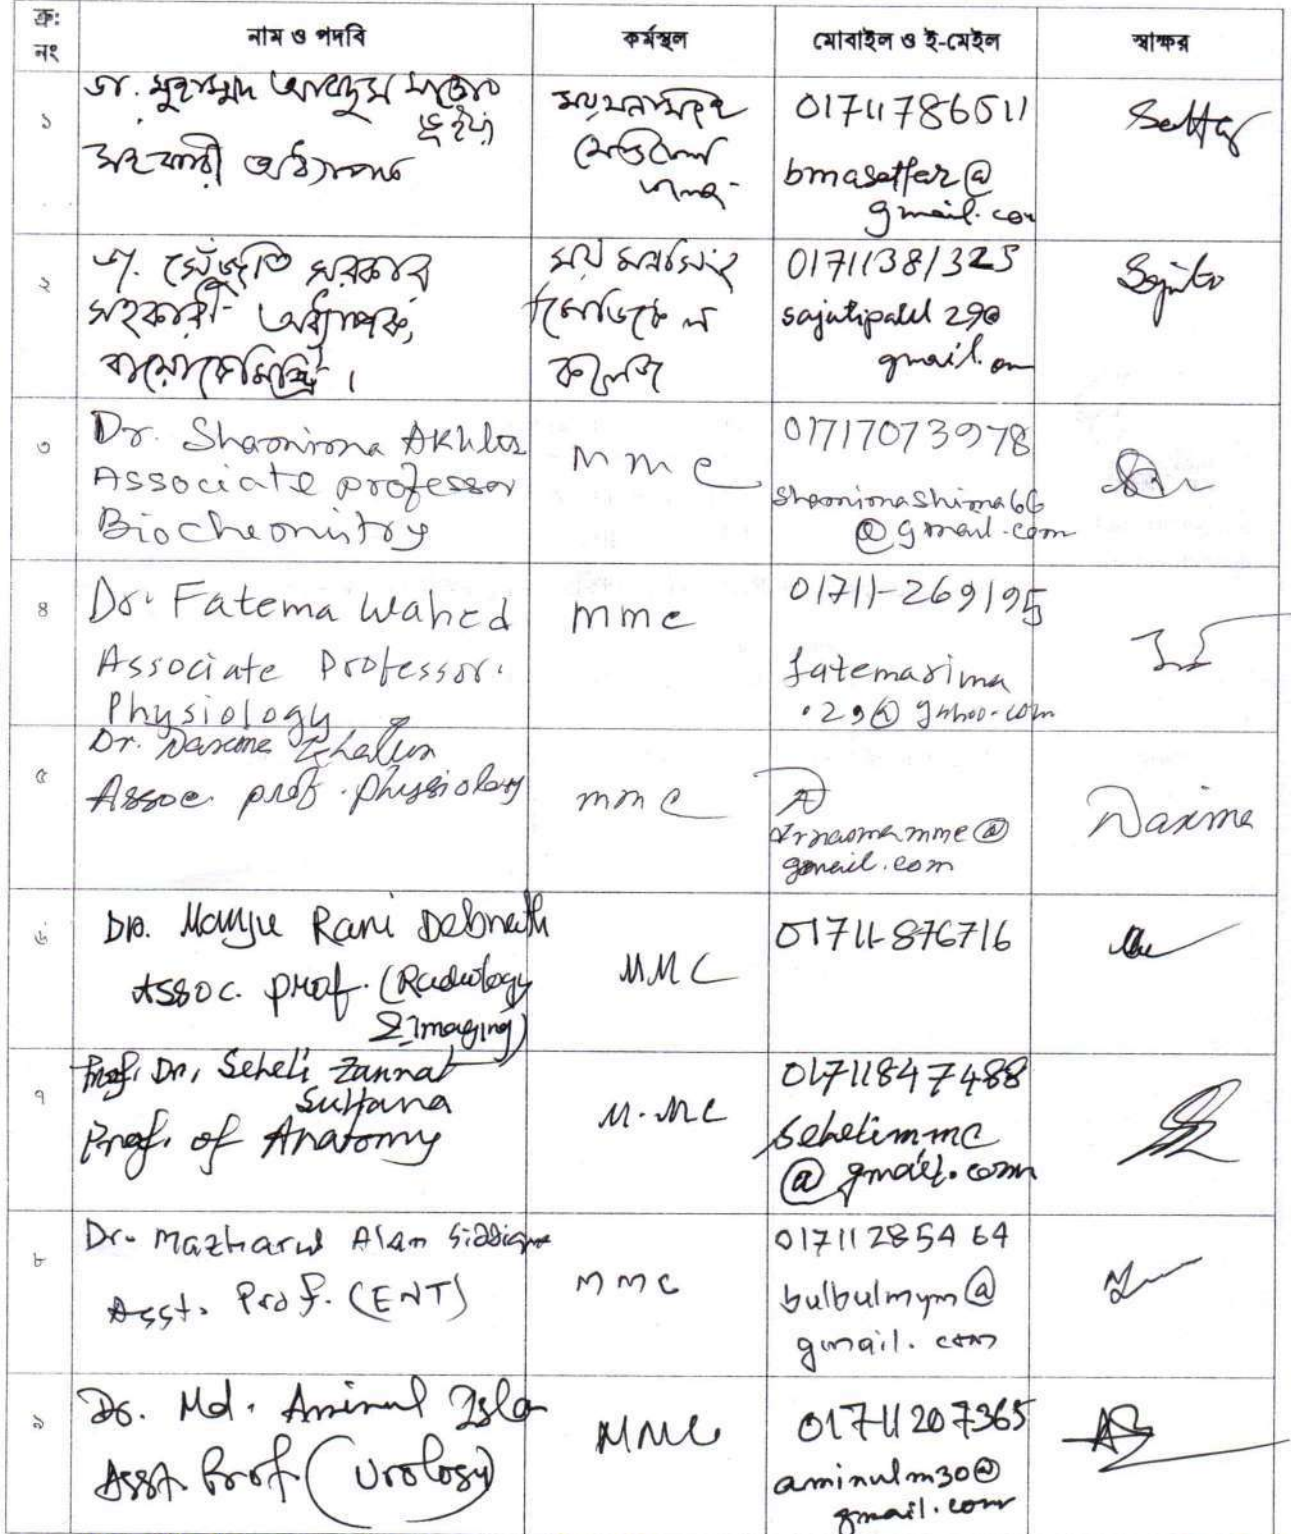 ক্র: নং নাম ও পদবি কর্মস্থল মোবাইল ও ই-মেইল স্বাক্ষর
১
ডা. মুহাম্মদ আবদুস সাত্তার
ভূইয়া
সহকারী অধ্যাপক
ময়মনসিংহ
মেডিকেল
01711786511
bmasattar@
gmail.com
Sattar
২
ডা. সেঁজুতি সরকার
সহকারী অধ্যাপক,
বায়োকেমিস্ট্রি।
ময়মনসিংহ
মেডিকেল
কলেজ
01711381325
29@
gmail.com
৩
Dr. Shamima Akhter
Associate professor
Biochemistry
MMC
01717073978
shamimashima66
@gmail.com
৪
Dr. Fatema Wahed
Associate Professor.
Physiology
mmc
01711-269195
fatemarima
.29@yahoo.com
৫
Dr. Nasima Khatun
Assoc. prof. physiology
mmc
drnasimammc@
gmail.com
Nasima
৬
DR. Manju Rani Debnath
Assoc. prof. (Radiology
& Imaging)
MMC
01711-876716
৭
Prof. Dr. Seheli Zannat
Sultana
Prof. of Anatomy
M.MC
01711847488
sehelimmc
@gmail.com
৮
Dr. Mazharul Alam Siddique
Asst. Prof. (ENT)
MMC
01711285464
bulbulmym@
gmail.com
৯
Dr. Md. Aminul Isla
Asst. Prof (Urology)
MMC
01711207365
aminulm30@
gmail.com